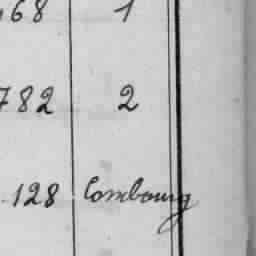 168 1
782 2
128 Combourg